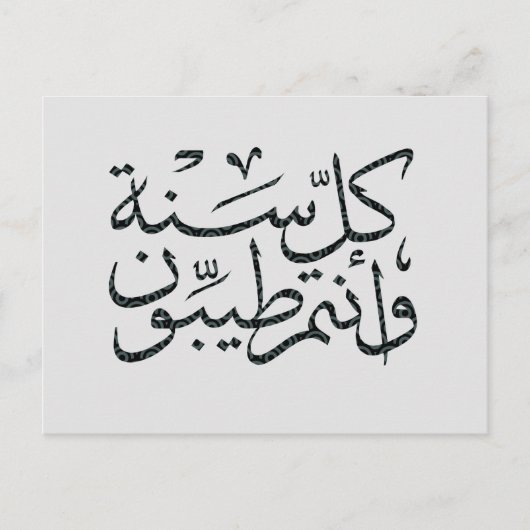 كلّ سَنة
وأنتم طيّبون